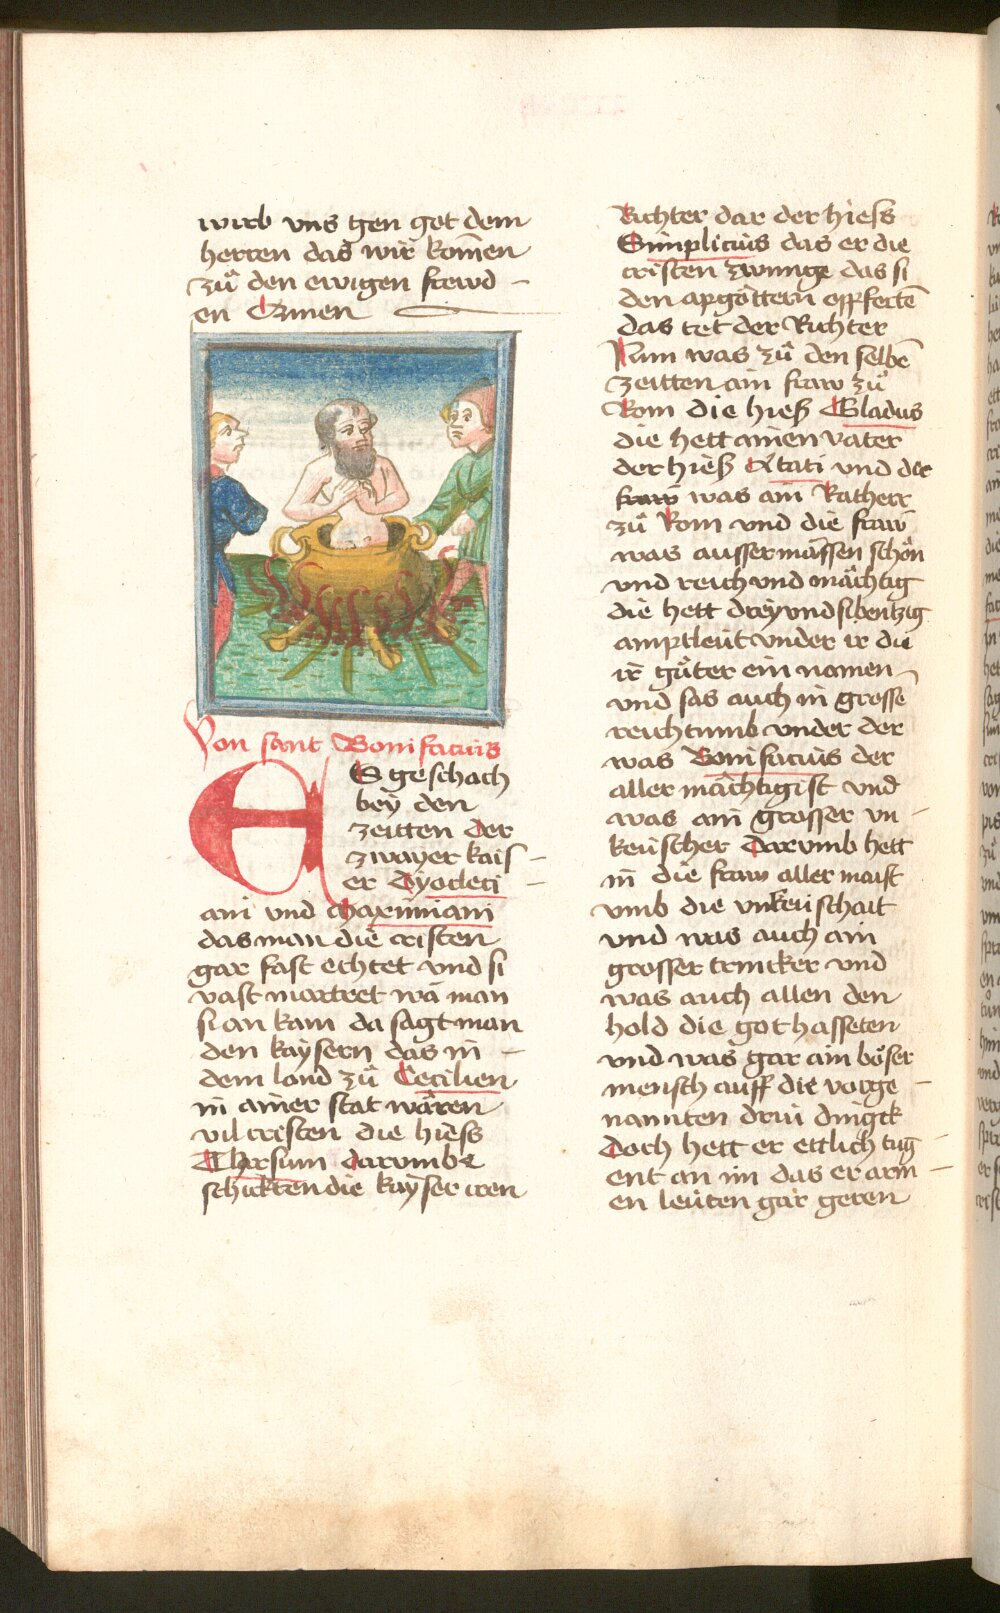 wirb vns gen got dem
herren das wir komen
zů den ewigen frewd
en Amen
Von sant Bonifacius
ES geschach
bey den
zeitten der
zwayer kais
er Dyocleci
ani vnd Maximiani
das man die cristen
gar fast echtet vnd si
vast martret wā man
si an kam da sagt man
den kaysern das in
dem land zů Cecilien
in ainer stat wären
vil cristen die hiess
Tharsum darvmb
schickten die kayser iren
Richter dar der hiess
Simplicius das er die
cristen zwunge das si
den apgöttern opffertē
das tet der Richter
Nun was zů den selbē
zeitten ain fraw zů
Rom die hieß Gladus
die hett ainen vater
der hieß Atati vnd der
fraw was ain Ratherr
zů Rom vnd die fraw
was aussermässen schön
vnd reich vnd mächtig
die hett drey vnd sibentzig
amptleüt vnder ir die
ir güter ein namen
vnd sas auch in grosse
reichtumb vnder der
was Bonifacius der
aller mächtigist vnd
was ain grosser vn
keüscher Darvmb hett
in die fraw aller maist
vmb die vnkeüschait
vnd was auch ain
grosser trincker vnd
was auch allen den
hold die got hasseten
vnd was gar ain böser
mensch auff die vorge
nannten drüi dingk
Doch hett er ettlich tug
ent an im das er arm
en leüten gar geren